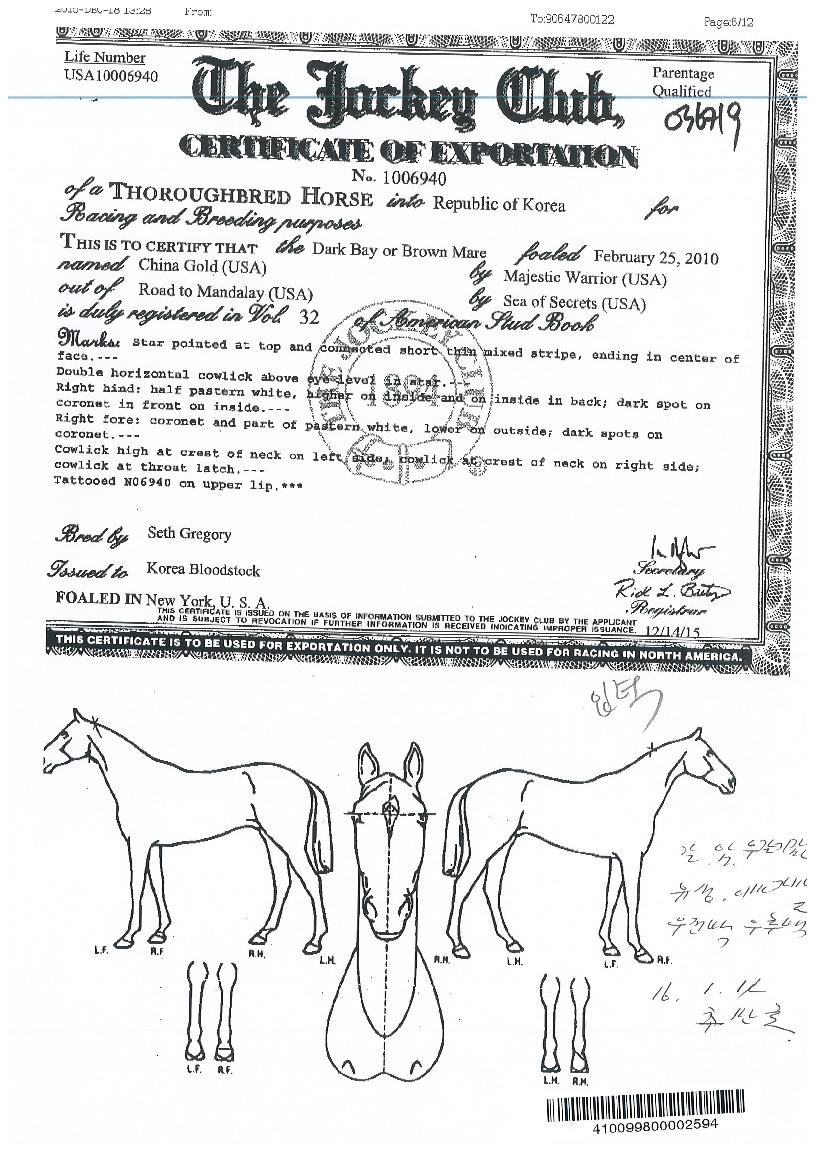 2015-DEC-18 13:28 From: To:90647800122 Page:6/12
Life Number
USA10006940
Parentage
Qualified
036719
The Jockey Club,
CERTIFICATE OF EXPORTATION
No. 1006940
of a THOROUGHBRED HORSE into Republic of Korea for
Racing and Breeding purposes
THIS IS TO CERTIFY THAT the Dark Bay or Brown Mare foaled February 25, 2010
named China Gold (USA) by Majestic Warrior (USA)
out of Road to Mandalay (USA) by Sea of Secrets (USA)
is duly registered in Vol. 32 of American Stud Book
Marks: Star pointed at top and connected short thin mixed stripe, ending in center of
face.---
Double horizontal cowlick above eye level in star.---
Right hind: half pastern white, higher on inside and on inside in back; dark spot on
coronet in front on inside.---
Right fore: coronet and part of pastern white, lower on outside; dark spots on
coronet.---
Cowlick high at crest of neck on left side; cowlick at crest of neck on right side;
cowlick at throat latch.---
Tattooed N06940 on upper lip.***
THE JOCKEY CLUB
1894
Bred by Seth Gregory
Issued to Korea Bloodstock
Secretary
Registrar
FOALED IN New York, U. S. A.
THIS CERTIFICATE IS ISSUED ON THE BASIS OF INFORMATION SUBMITTED TO THE JOCKEY CLUB BY THE APPLICANT
AND IS SUBJECT TO REVOCATION IF FURTHER INFORMATION IS RECEIVED INDICATING IMPROPER ISSUANCE. 12/14/15
THIS CERTIFICATE IS TO BE USED FOR EXPORTATION ONLY. IT IS NOT TO BE USED FOR RACING IN NORTH AMERICA.
L.F. R.F R.H. L.H. R.H. L.H. L.F. R.F.
우전백 우후백
16. 1. 14
L.F. R.F. L.H. R.H.
410099800002594